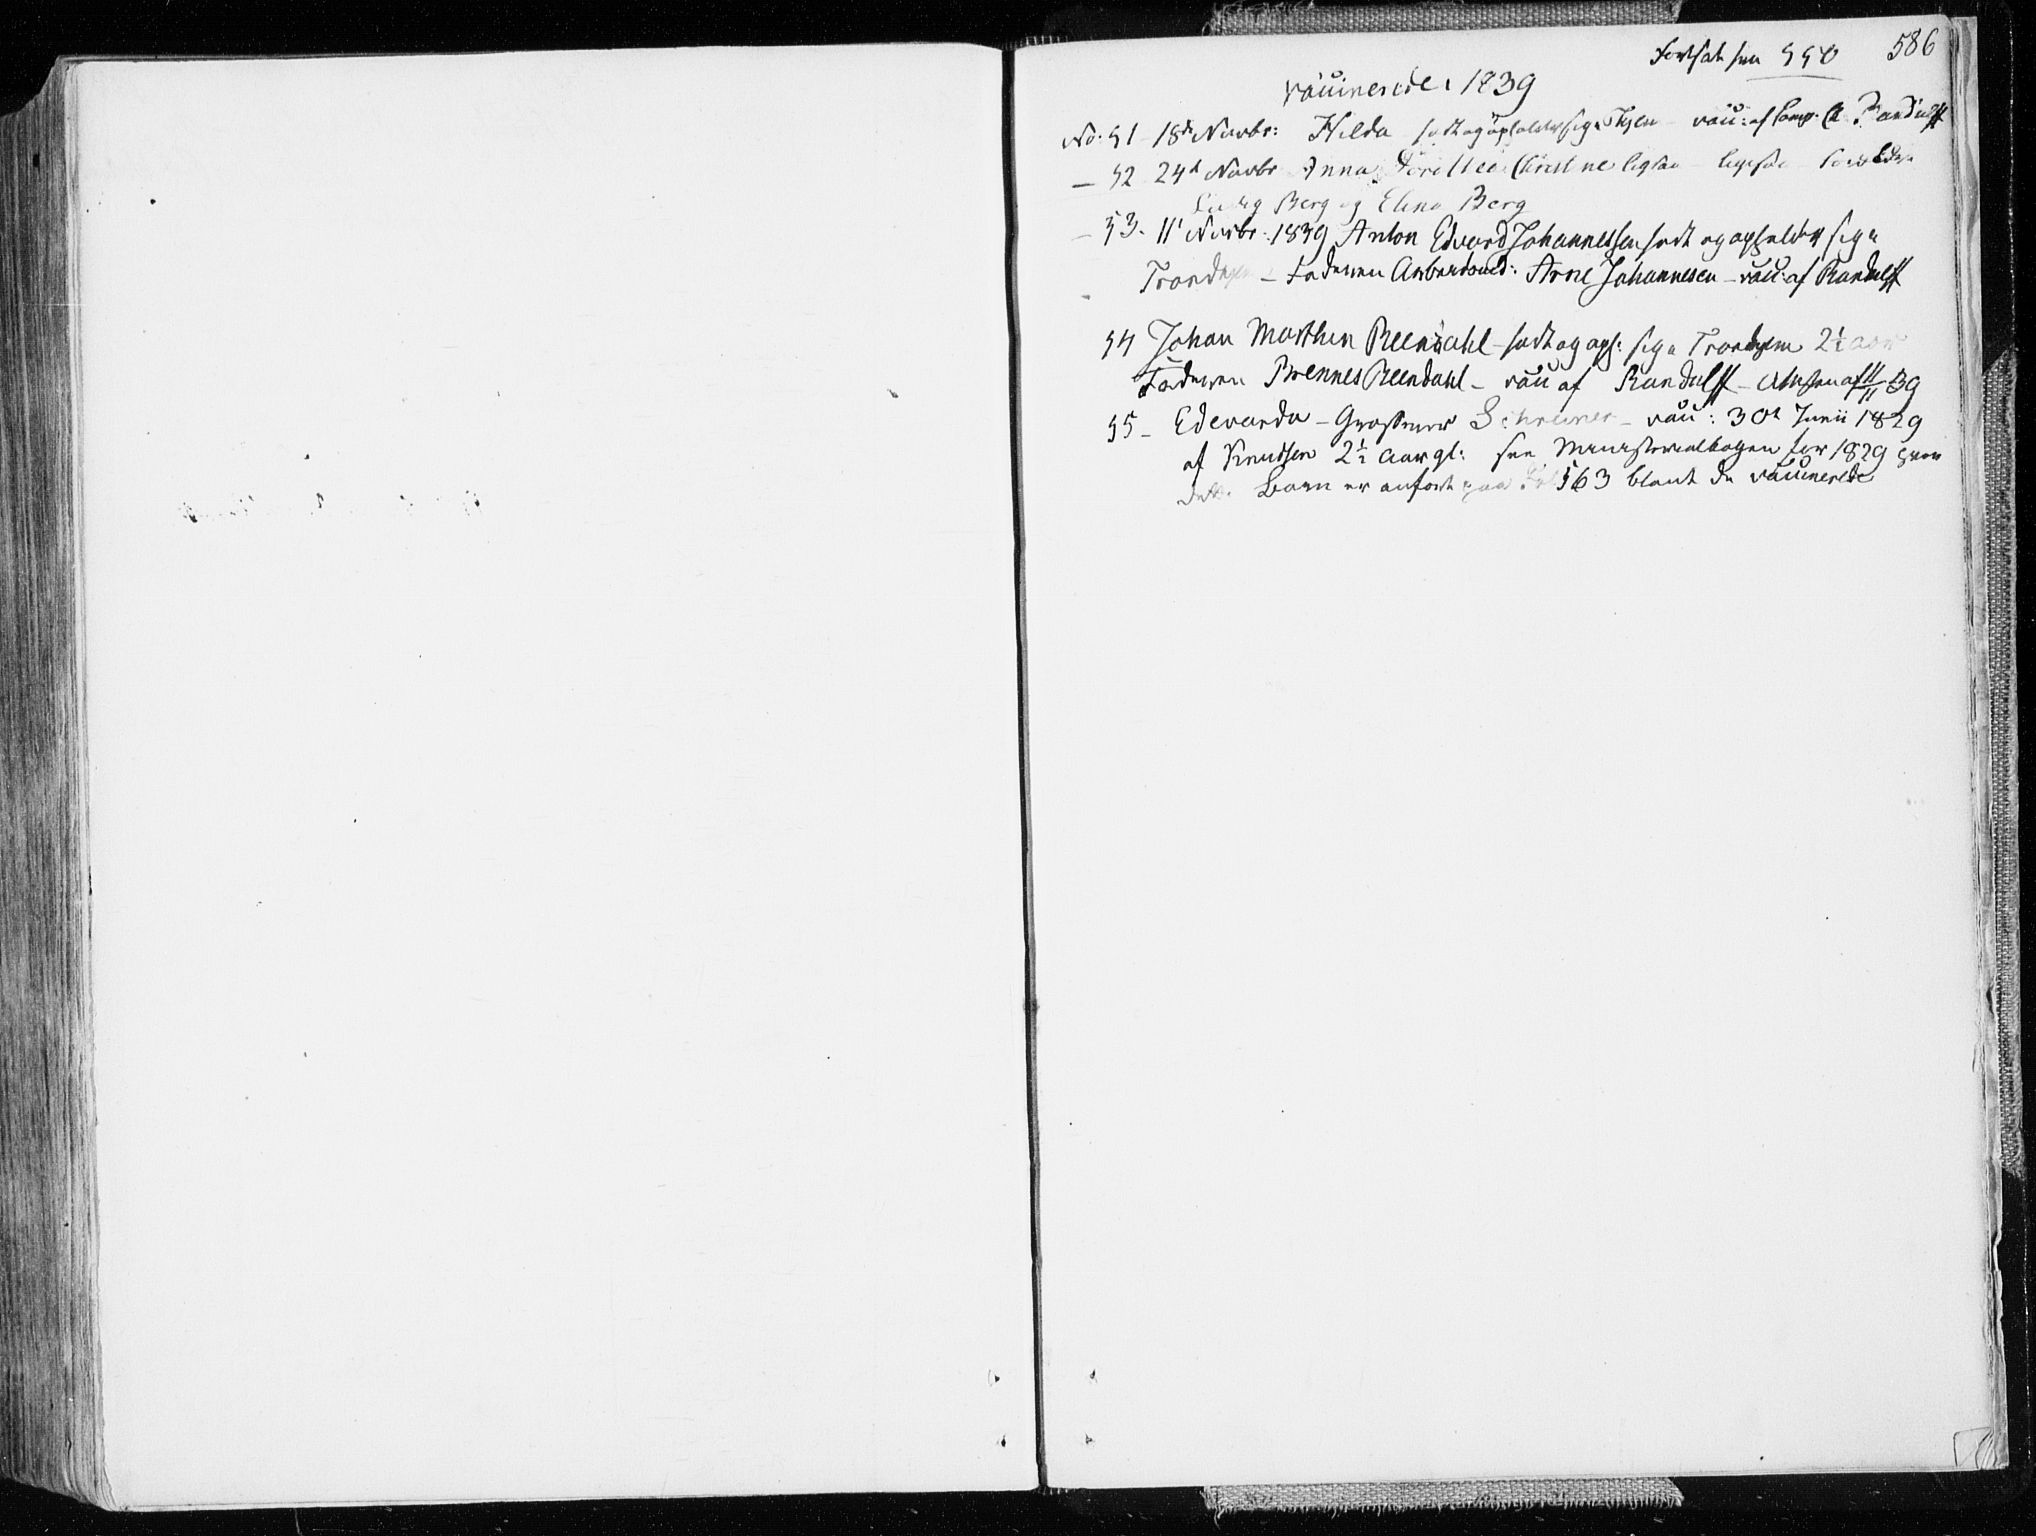 Fortsat fra 550 586
váuinerede. 1839
No. 51 - 18de Novbr: Hilda - født og opholder sig i Thjem - váu: af Comp. Ch. Randulff
— 52 24de Novbr Anna Dorothea Christine ligesaa - ligesaa - Forældre
Ludvig Berg og Elina Berg
— 53. 11te Novbr: 1839 Anton Edvard Johannessen født og opholder sig i
Trondhjem - Faderen Arbeidsmd: Arne Johannesen - váu: af Randulff
54 Johan Marthin Reendahl - født og oph: sig i Trondhjem 2½ aar
Faderen Reendahl - váu af Randulff - Attesten af 11/11 39
55 - Edevarda - Schreiner - váu: 30te Junii 1829
af Knudsen 2½ Aar gl: see Ministerialbogen for 1829 hvor
dette Barn er anført paa Fol 563 blant de váuinerede